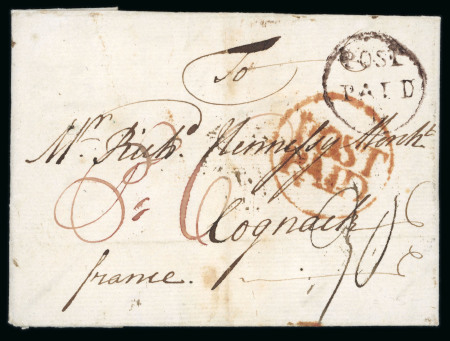 POST
PAID
To
Mr. Richd. Hennessy Mercht.
POST
PAID
Cognack
france.